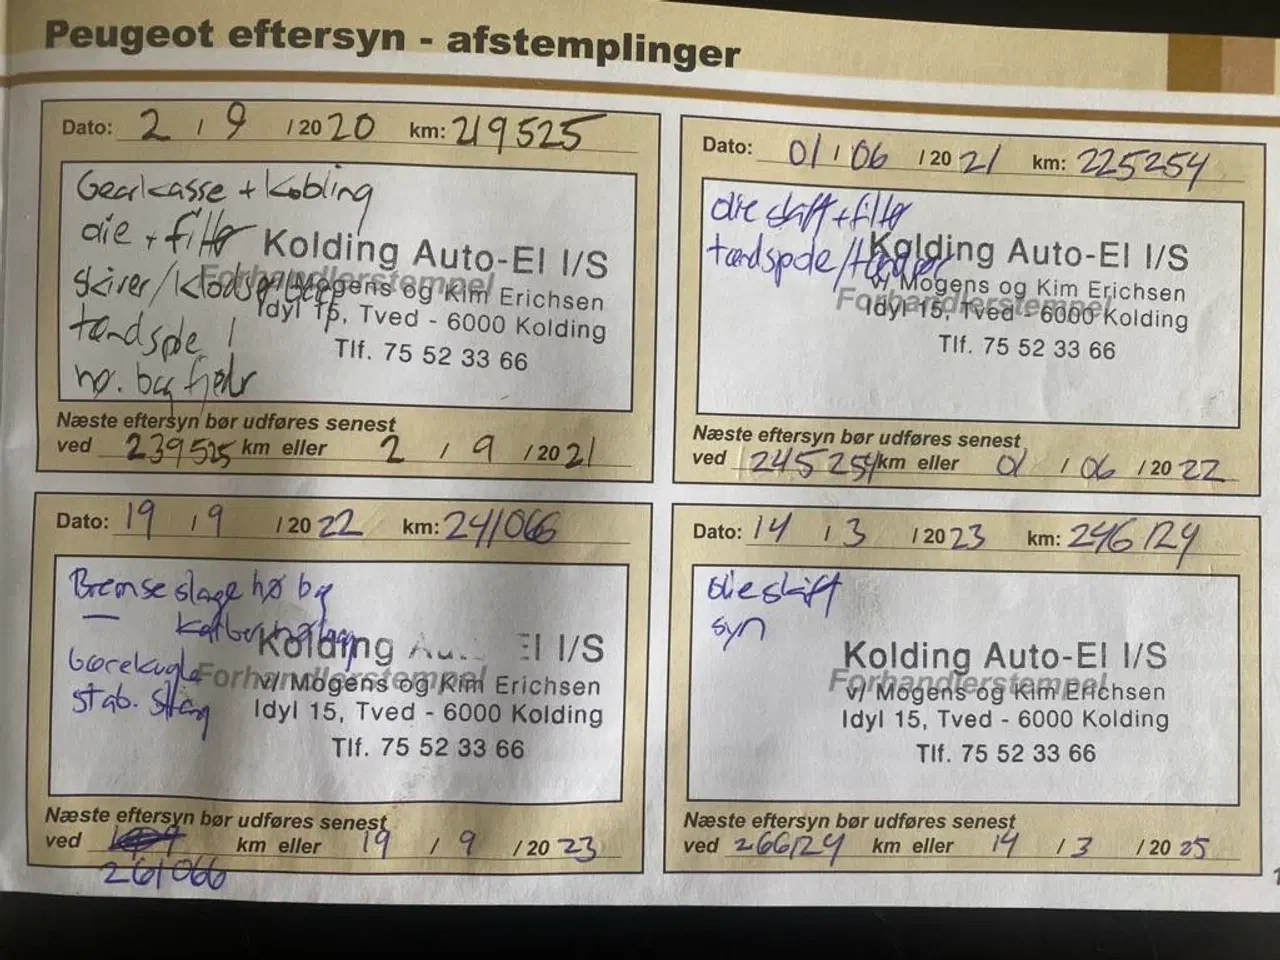 Peugeot eftersyn - afstemplinger
Dato: 2 / 9 / 20 20 km: 219525
Gearkasse + Kobling
olie + filter
skiver/klodser bag
tændspole 1
hø. bag fjedr
Forhandlerstempel
Kolding Auto-El I/S
v/ Mogens og Kim Erichsen
Idyl 15, Tved - 6000 Kolding
Tlf. 75 52 33 66
Næste eftersyn bør udføres senest
ved 239525 km eller 2 / 9 / 20 21
Dato: 01 / 06 / 20 21 km: 225254
olie skift + filter
tændspole/
Forhandlerstempel
Kolding Auto-El I/S
v/ Mogens og Kim Erichsen
Idyl 15, Tved - 6000 Kolding
Tlf. 75 52 33 66
Næste eftersyn bør udføres senest
ved 245254 km eller 01 / 06 / 20 22
Dato: 19 / 9 / 20 22 km: 241066
Bremseslage hø bg
bærekugle
stab. stang
Forhandlerstempel
Kolding Au El I/S
v/ Mogens og Kim Erichsen
Idyl 15, Tved - 6000 Kolding
Tlf. 75 52 33 66
Næste eftersyn bør udføres senest
ved km eller 19 / 9 / 20 23
261066
Dato: 14 / 3 / 20 23 km: 246124
olieskift
syn
Forhandlerstempel
Kolding Auto-El I/S
v/ Mogens og Kim Erichsen
Idyl 15, Tved - 6000 Kolding
Tlf. 75 52 33 66
Næste eftersyn bør udføres senest
ved 266124 km eller 14 / 3 / 20 25